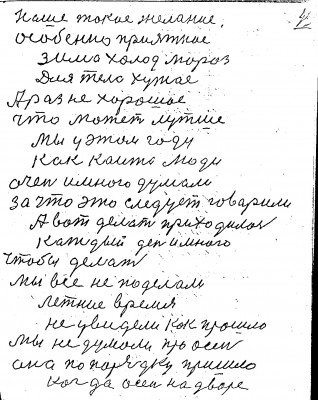 Наше такое желание,
особенно приятное
зима холод мороз
Для тело хужае
А раз не хорошое
что может лутше
мы у этом году
как каита моди
очен имного думали
за что это следует говарили
А вот делат приходилос
каждый ден имного
чтобы делат
мы все не поделали
летние время
не увидели как прошло
мы не думали про осен
она по порядку пришло
когда осен на дворе